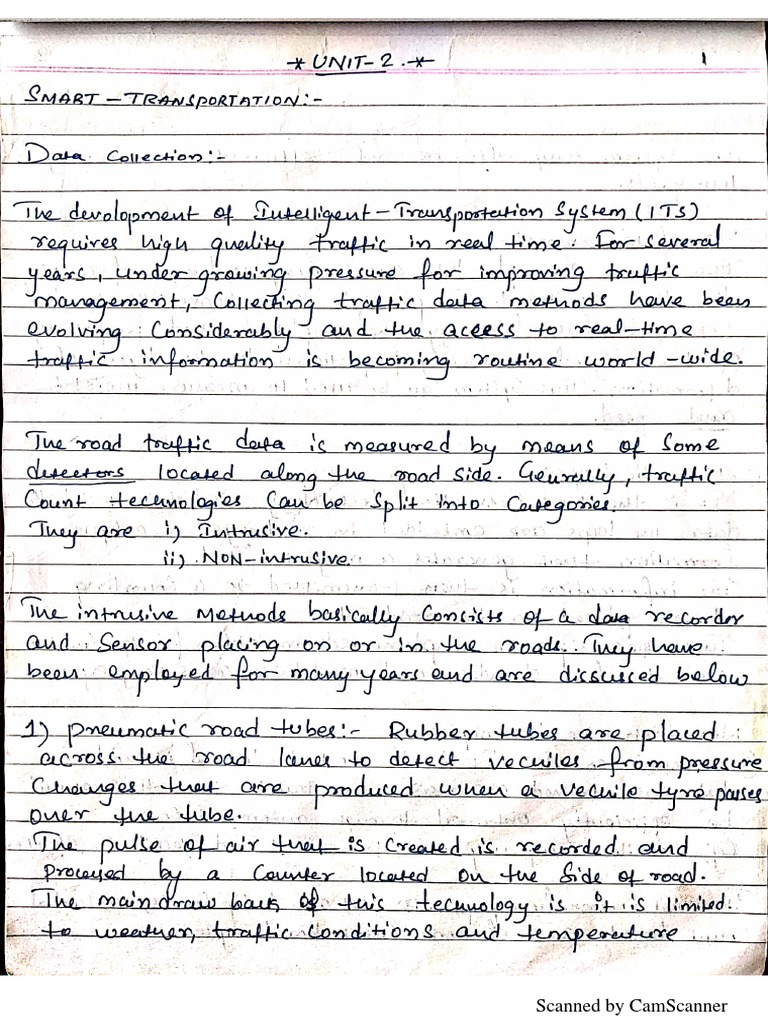 * UNIT-2. *
1
SMART-TRANSPORTATION:-
Data Collection:-
The devolopment of Intelligent-Transportation System (ITS)
requires high quality traffic in real time. For several
years, under growing pressure for improving traffic
management, Collecting traffic data methods have been
evolving Considerably and the access to real-time
traffic information is becoming routine world-wide.
The road traffic data is measured by means of Some
detectors located along the road side. Generally, traffic
Count technologies Can be Split into Categories.
They are i) Intrusive.
ii) NON-intrusive.
The intrusive Methods basically Consists of a data recorder
and Sensor placing on or in the roads. They have
been employed for many years and are discussed below
1) Pneumatic road tubes:- Rubber tubes are placed
across the road lanes to detect vechiles from pressure
Changes that are produced when a vechile tyre passes
over the tube.
The pulse of air that is Created is recorded and
processed by a Counter located on the Side of road.
The main draw back of this technology is it is limited
to weather, traffic Conditions and temperature
Scanned by CamScanner